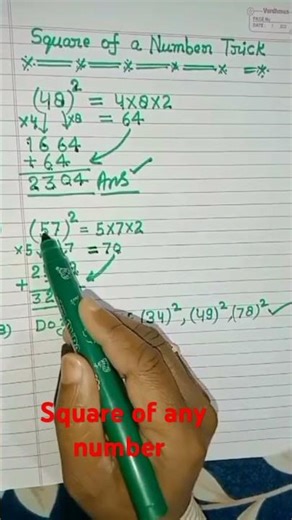 Vardhman
PAGE No.
DATE
Square of a Number Trick
(48)² = 4×8×2
×4↓ ↓×8 = 64
1664
+ 64
2304 Ans ✓
(57)² = 5×7×2
×5 = 70
+
Do
(34)², (49)², (78)² ✓
Square of any
number